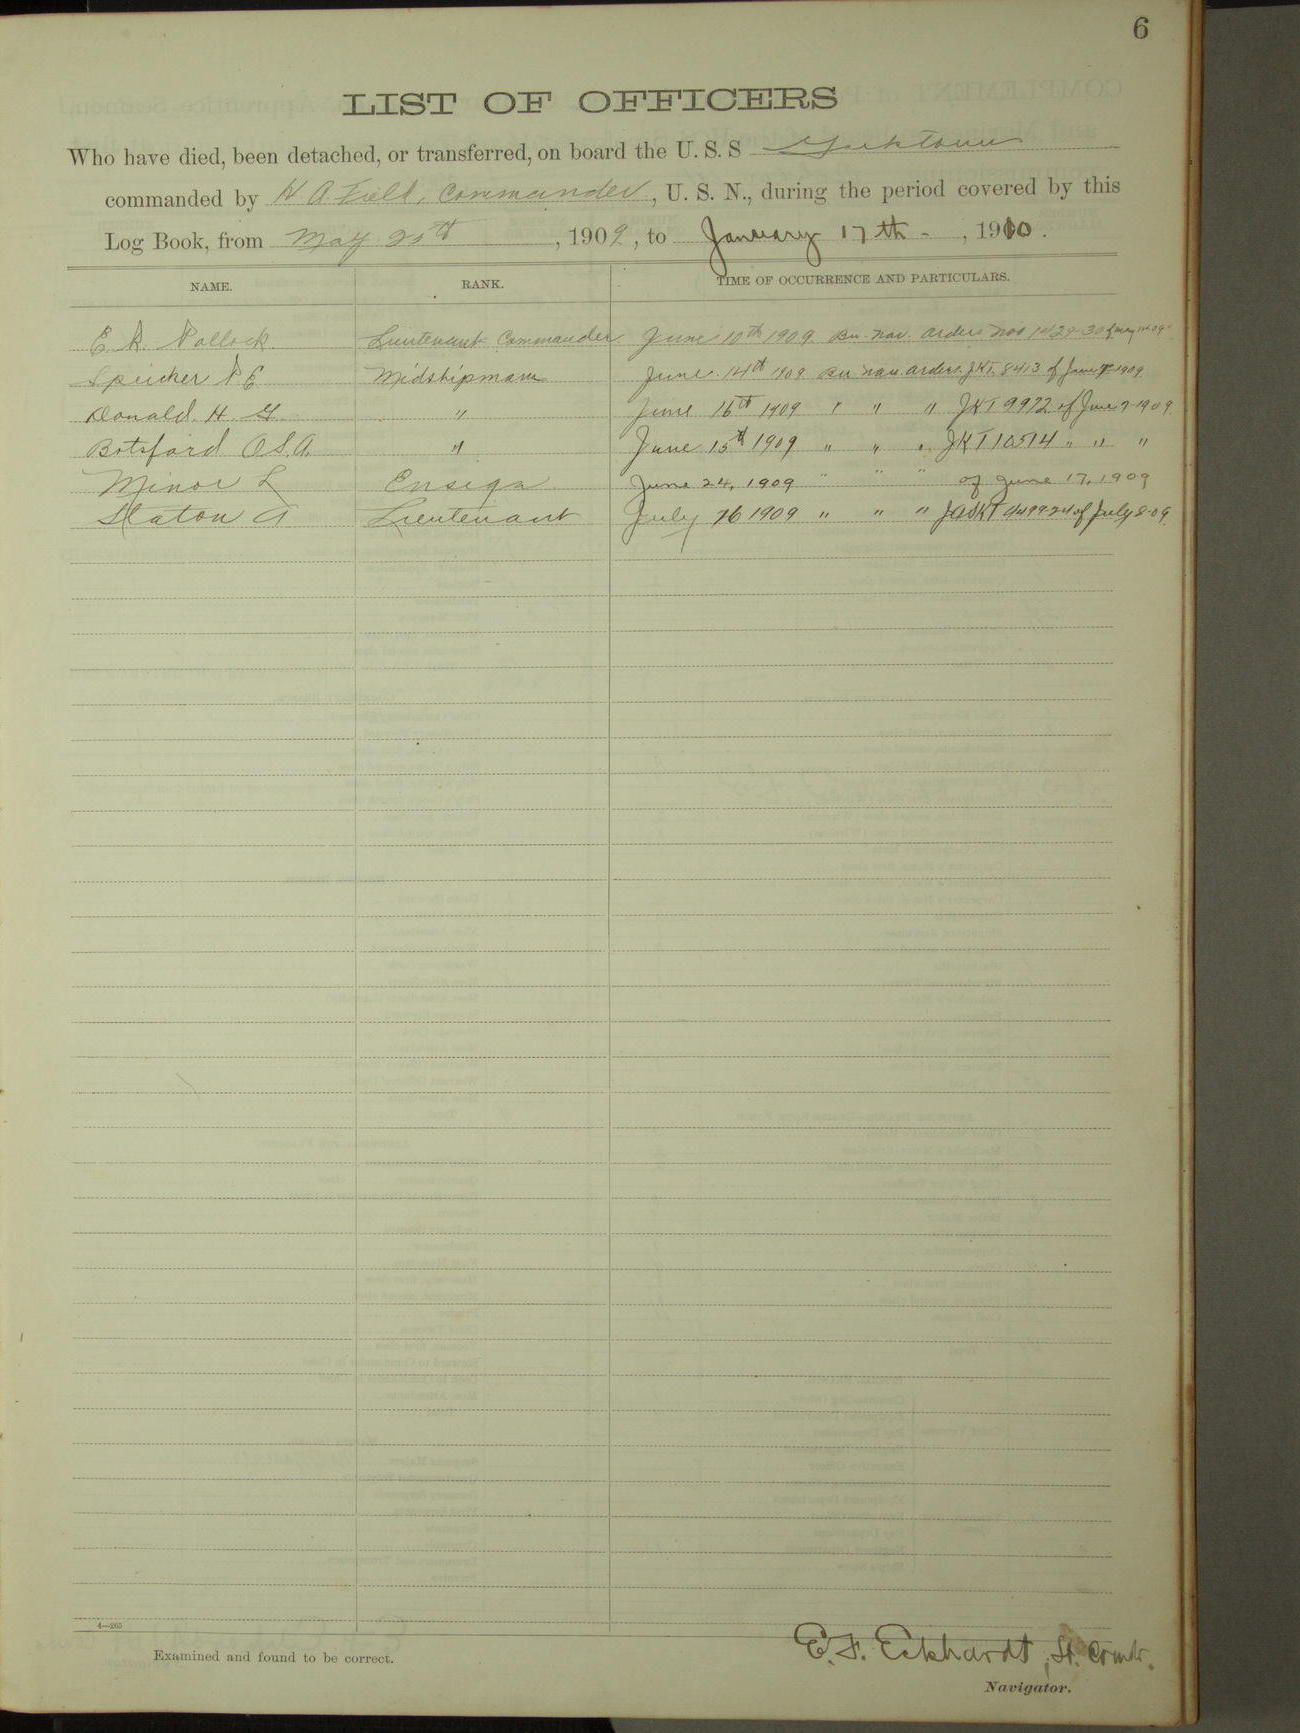 6
LIST OF OFFICERS
Who have died, been detached, or transferred, on board the U. S. S Yorktown
commanded by H A Field, Commander, U. S. N., during the period covered by this
Log Book, from May 25th, 1909, to January 17th -, 1910.
NAME. RANK. TIME OF OCCURRENCE AND PARTICULARS.
E. R. Pollock Lieutenant Commander June 10th 1909. Bu. Nav. orders Nos
Speicher P E Midshipman June 14th 1909 Bu nav. orders. JKT. 8413 of June 7-1909
Donald. H. G. " June 16th 1909 " " " JKT 9972 of June 7-1909
Botsford O.S.A. " June 15th 1909 " " " JKT 10514 " " "
Minor L Ensign June 24, 1909 " " " of June 17, 1909
Staton A Lieutenant July 16 1909 " " " of July 8-09.
4—265
Examined and found to be correct.
E. F. Eckhardt, Lt. Comdr.
Navigator.